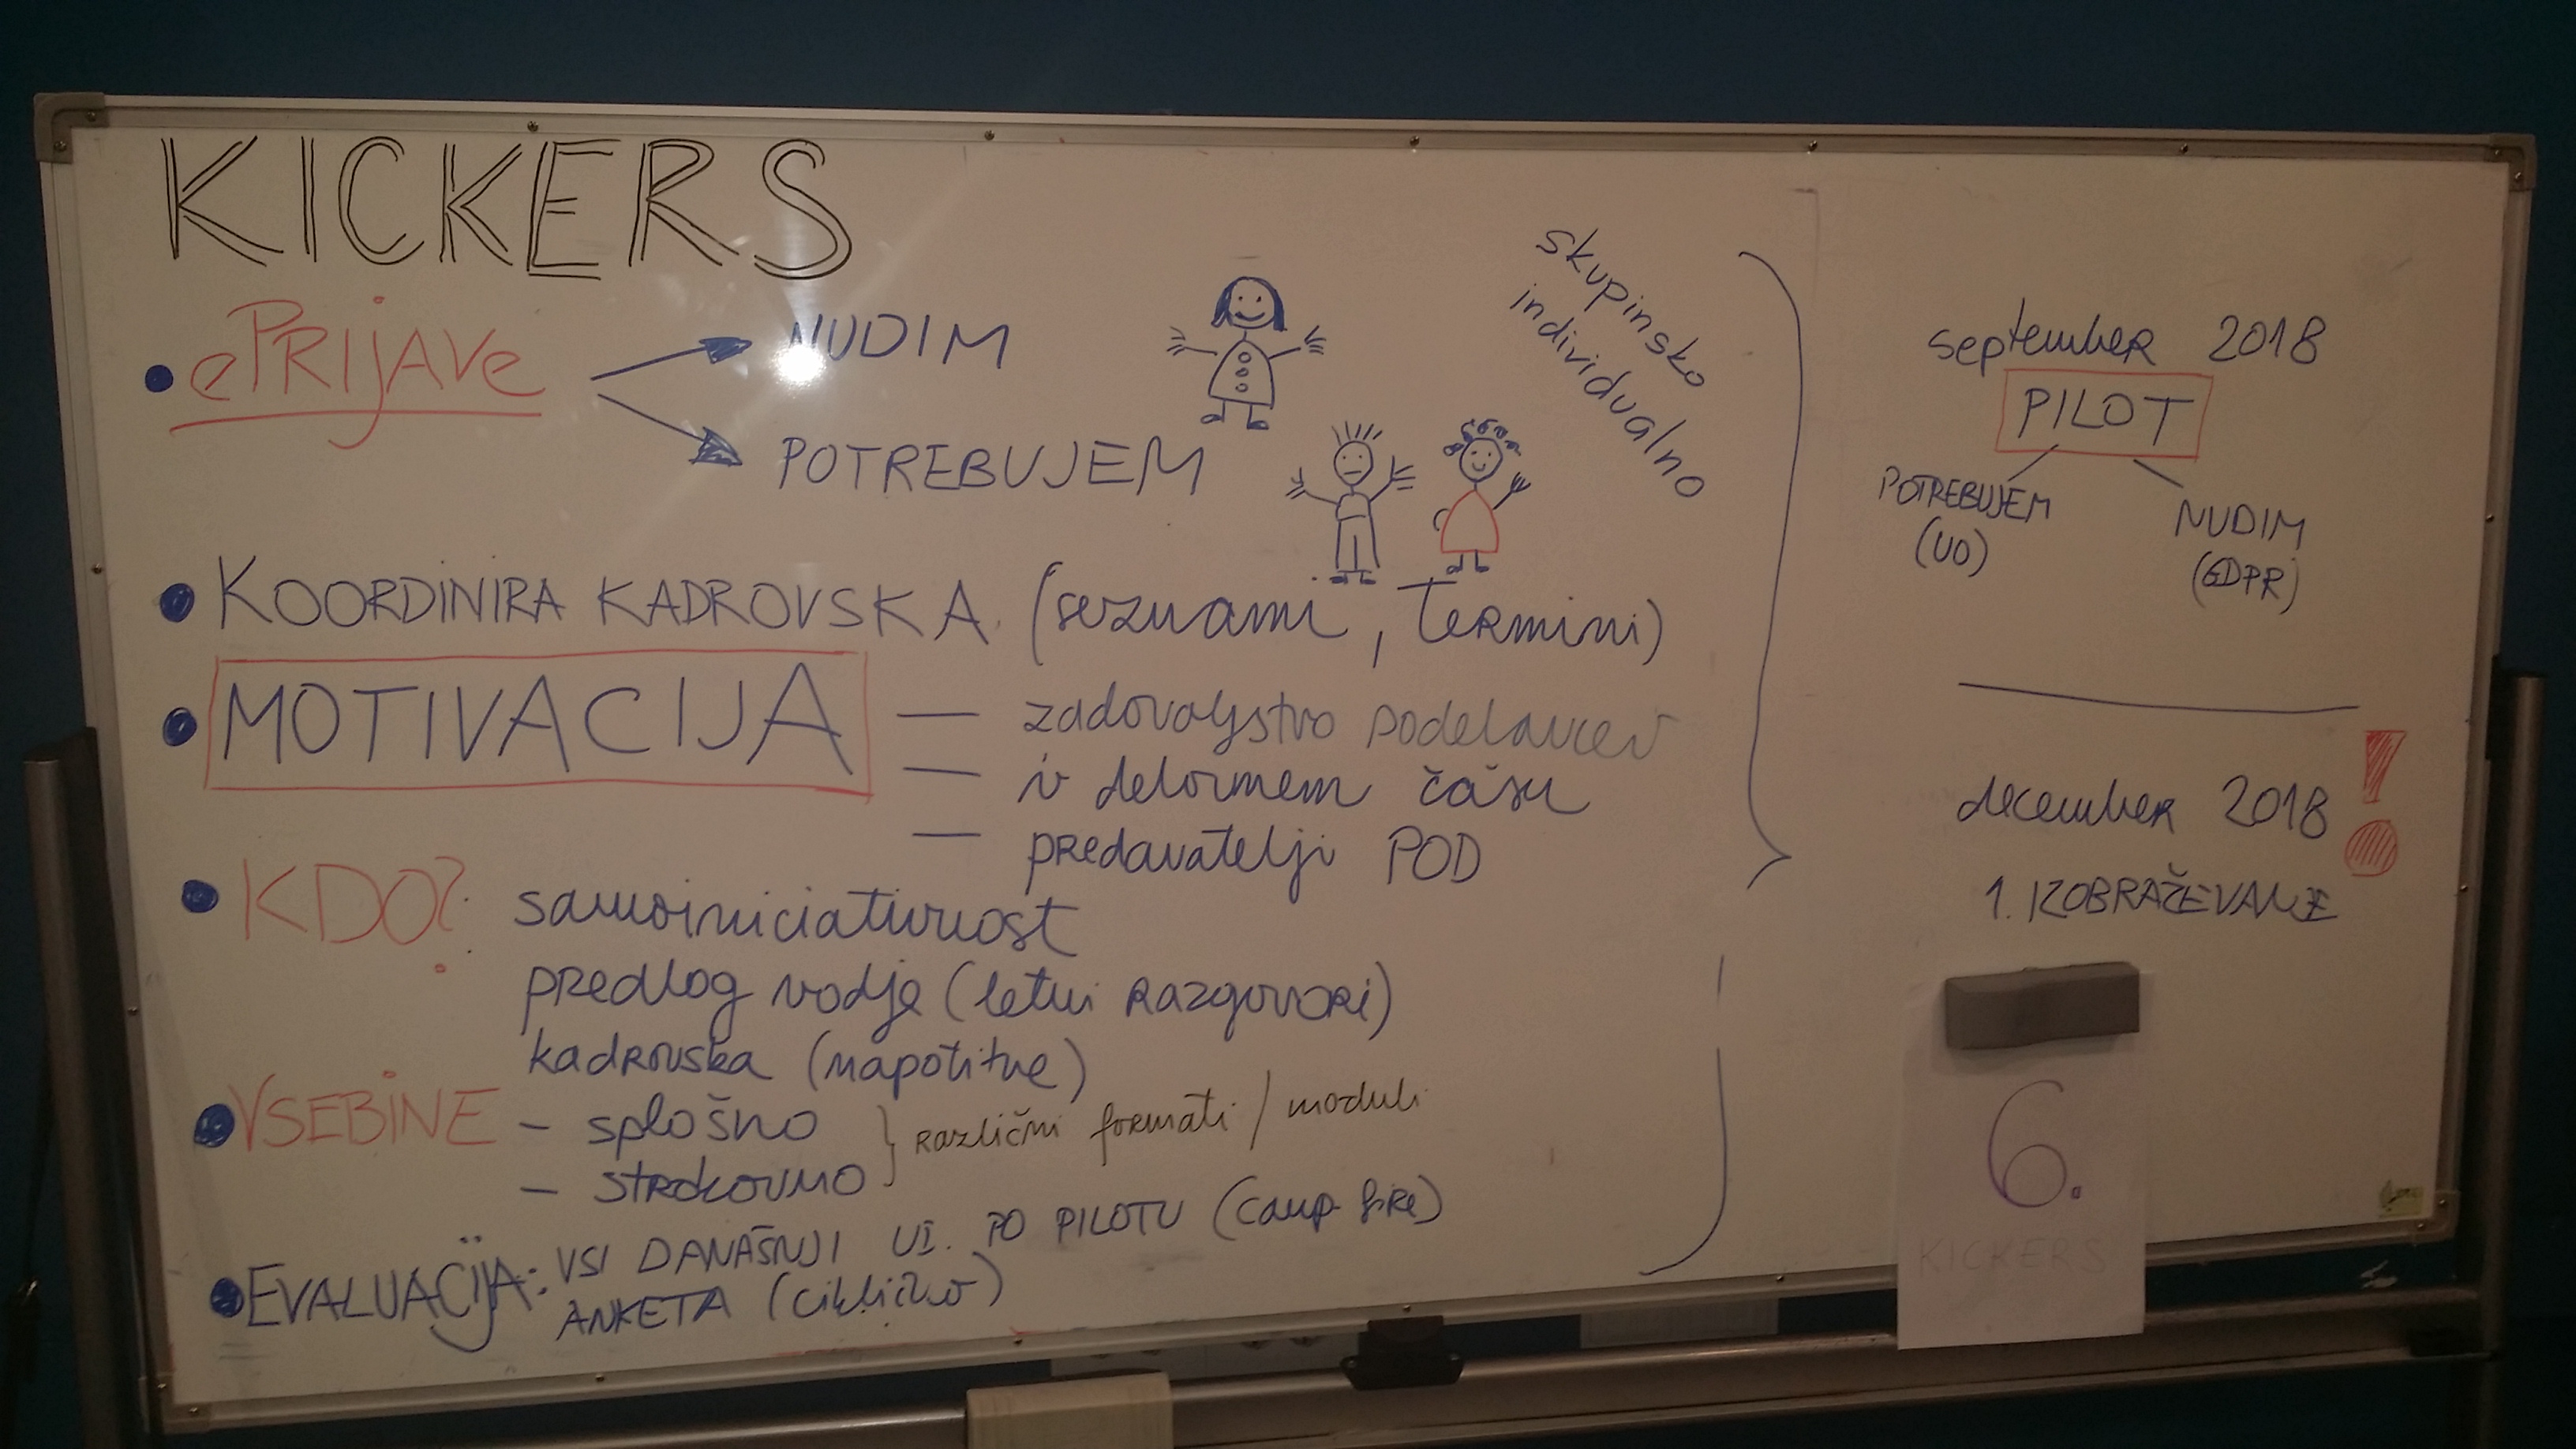 KICKERS
• ePRIJAVE
NUDIM
POTREBUJEM
skupinsko
individualno
• KOORDINIRA KADROVSKA (seznami, termini)
• MOTIVACIJA
— zadovoljstvo sodelavcev
— v delovnem času
— predavatelji POD
• KDO? samoiniciativnost
predlog vodje (letni razgovori)
kadrovska (napotitve)
• VSEBINE - splošno
- strokovno
} različni formati / moduli
• EVALUACIJA: VSI DANAŠNJI UI. PO PILOTU (camp fire)
ANKETA (ciklično)
september 2018
PILOT
POTREBUJEM
(UO)
NUDIM
(GDPR)
december 2018 !
1. IZOBRAŽEVANJE
6.
KICKERS